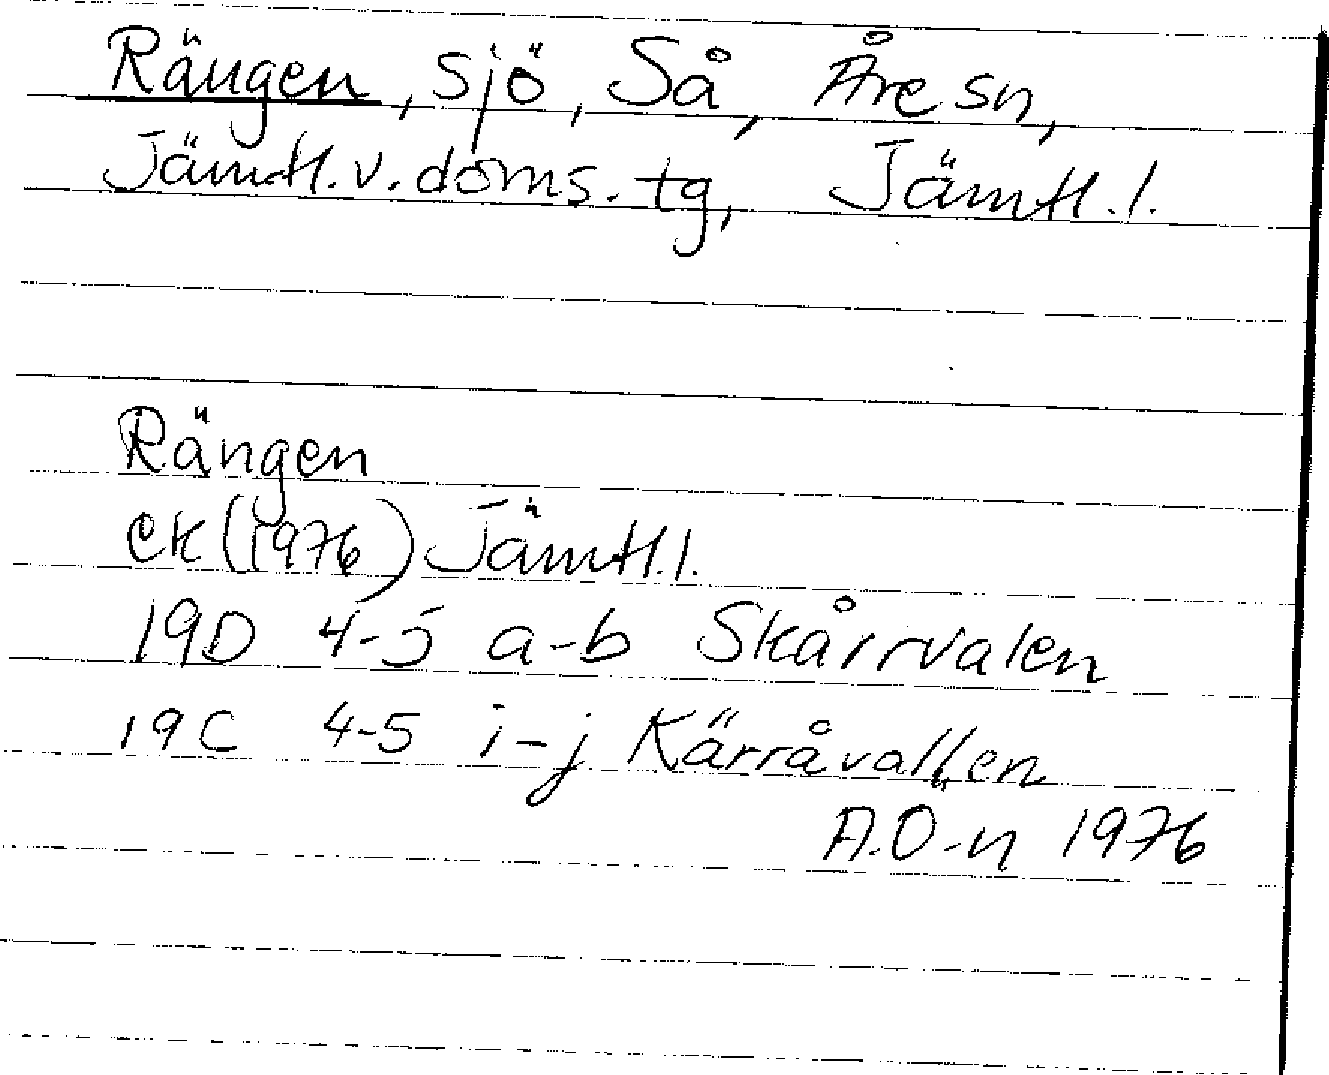 Rängen, sjö, Så, Åre sn,
Jämtl. v. doms. tg, Jämtl. l.
Rängen
ek (1976) Jämtl. l.
19D 4-5 a-b Skårrvalen
19C 4-5 i-j Kärråvallen
A.Ö-n 1976